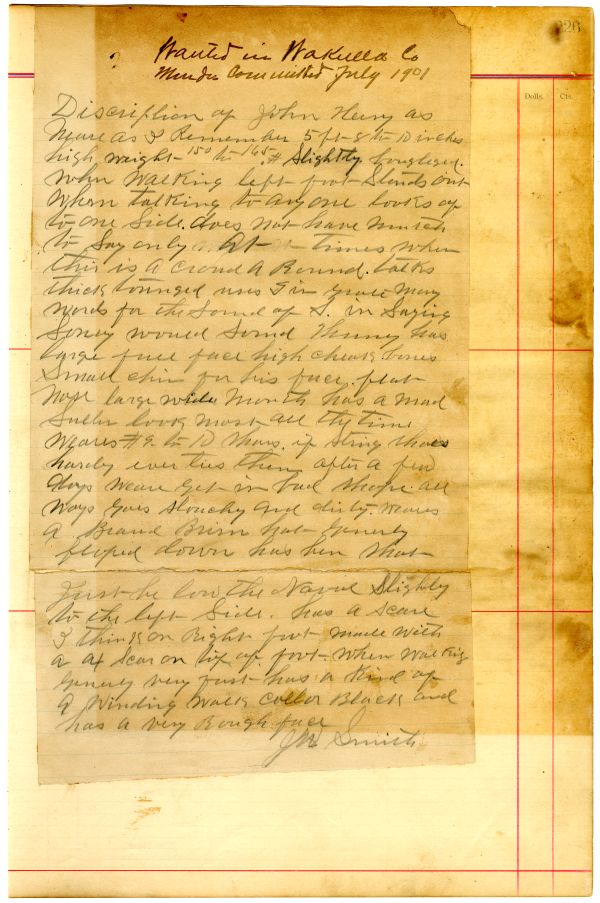 226
Wanted in Wakulla Co
Murder Committed July 1901
Dolls. Cts.
Discription of John Henry as
neare as I Remember 5 ft 8 to 10 inches
high waight 150 to 165 # Slightly bowleged.
when walking left foot Stands out
when talking to anyone looks of
to one Side. does not have mutch
to Say only at times when
this is a croud a Round. talks
thick tounged uses
words for the Sound of S. in Saying
Soney would Sound Thuney has
large full face high cheak bones
Small chin for his face. flat
nose large wide mouth has a mad
Suller look most all the time
weares #9 to 10 Shoes. if String shoes
hardly ever ties them after a few
days weare get in bad shape. all
ways goes Slouchy and dirty. weares
a Braud Brim hat generly
floped down has ben Shot
Just be low the Naval Slighly
to the left Side. has a Scare
I think on Right foot made with
a ax Scar on top of foot when walking
generly very fast has a Kind of
a Winding walk coller Black and
has a very Rough face
Smith